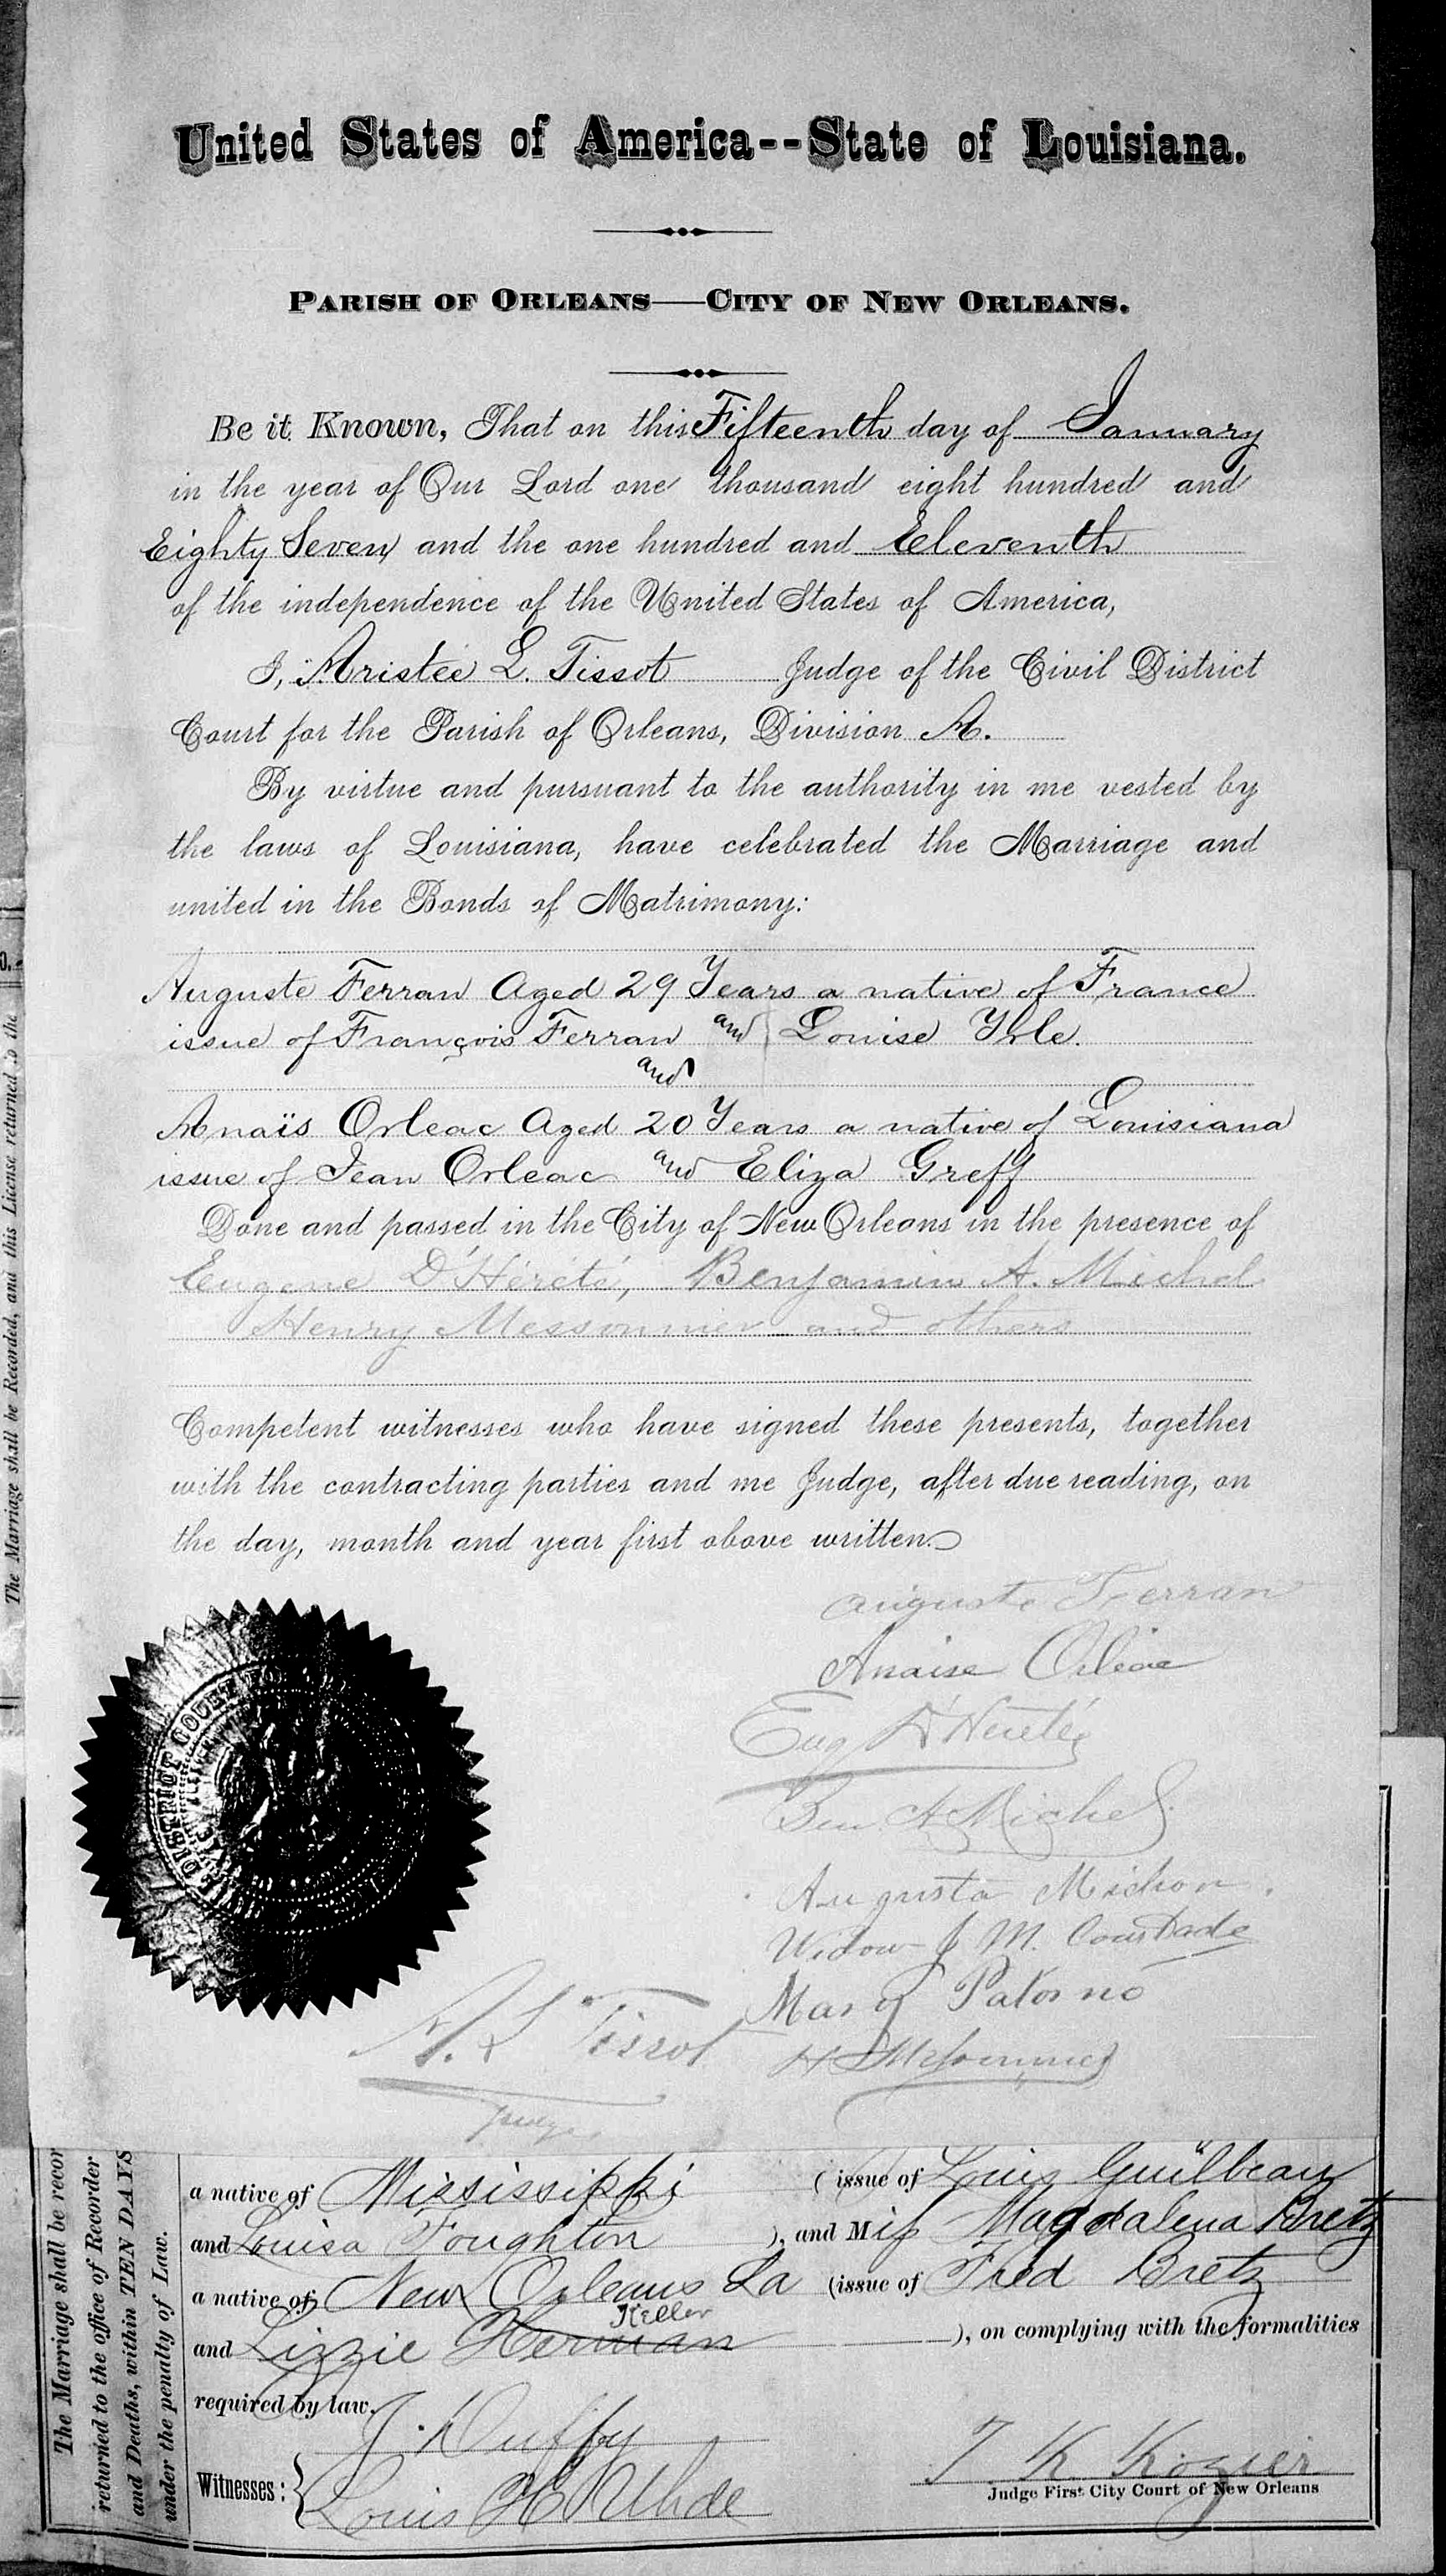 United States of America--State of Louisiana.
PARISH OF ORLEANS—CITY OF NEW ORLEANS.
Be it Known, That on this Fifteenth day of January
in the year of Our Lord one thousand eight hundred and
Eighty Seven and the one hundred and Eleventh
of the independence of the United States of America,
I, Aristée L. Tissot Judge of the Civil District
Court for the Parish of Orleans, Division A.
By virtue and pursuant to the authority in me vested by
the laws of Louisiana, have celebrated the Marriage and
united in the Bonds of Matrimony:
Auguste Ferran Aged 29 Years a native of France
issue of François Ferran and Louise Yrle.
and
Anaïs Orleac Aged 20 Years a native of Louisiana
issue of Jean Orleac and Eliza Greff
Done and passed in the City of New Orleans in the presence of
Eugene D'Héreté, Benjamin A. Michel
Henry Messonnier and others
Competent witnesses who have signed these presents, together
with the contracting parties and me Judge, after due reading, on
the day, month and year first above written.
Auguste Ferran
Anaise Orleac
Eug D'Hereté
Ben A Michel
Augusta Michon.
Widow J M. Coustade
Mary Patorno
A. L Tissot
H Messonnier
Judge
DISTRICT COURT
The Marriage shall be Recorded, and this License returned to the
The Marriage shall be recor
returned to the office of Recorder
and Deaths, within TEN DAYS
under the penalty of Law.
a native of Mississippi (issue of Louis Guilbeau
and Louisa Foughton ), and Miss Magdalena Bretz
a native of New Orleans La (issue of Fred Bretz
Keller
and Lizzie Herman ), on complying with the formalities
required by law.
J. Duffy
Witnesses: Louis H Uhde
T K Kozier
Judge First City Court of New Orleans